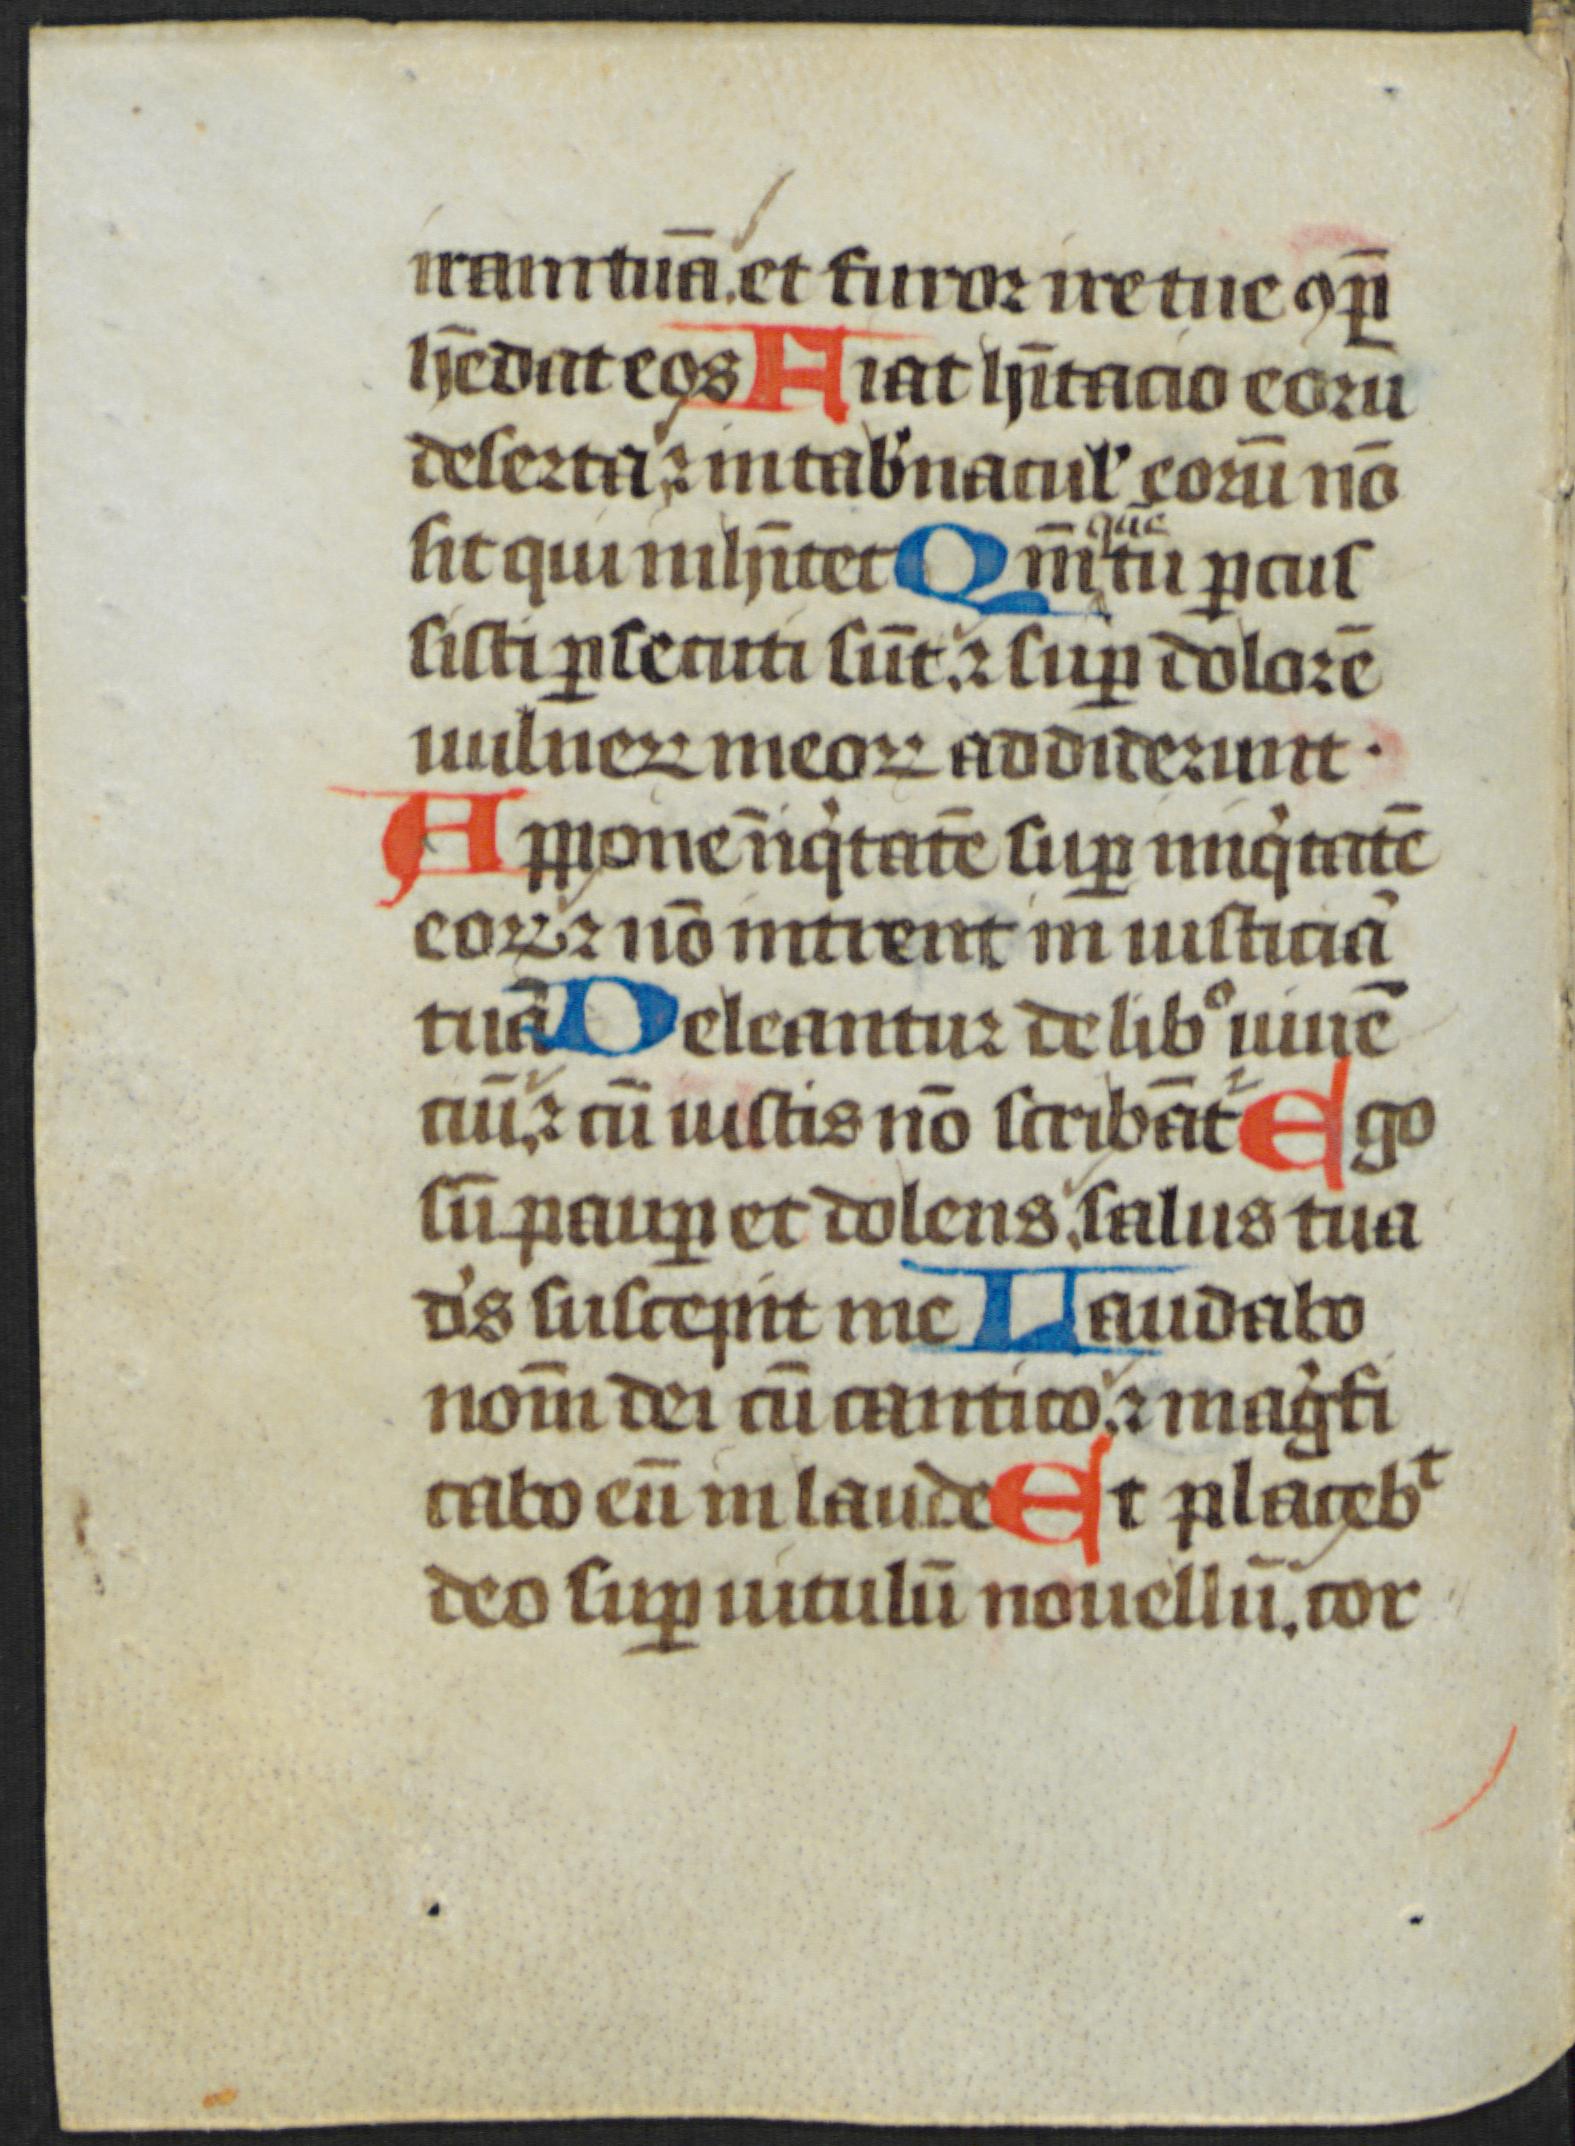 iram tuā. et furor ire tue ꝯp̄
hēdat eos Fiat hītacio eorū
deserta ⁊ in tab'nacul' eorū nō
sit qui inhītet Qm̄ que tu ꝑcus
sisti ꝑsecuti sūt. ⁊ suꝑ dolorē
uulneꝝ meoꝝ addiderunt.
Appone īiqͥtatē suꝑ iniqͥtatē
eoꝝ ⁊ nō intrent in iusticiā
tuā Deleantur de libº uiuē
ciū. ⁊ cū iustis nō scribāt᷑ Ego
sū pauꝑ et dolens. salus tua
d's suscepit me Laudabo
nom̄ dei cū cantico. ⁊ magͥfi
cabo eū in laude Et placebᵗ
deo suꝑ uitulū nouellū. cor